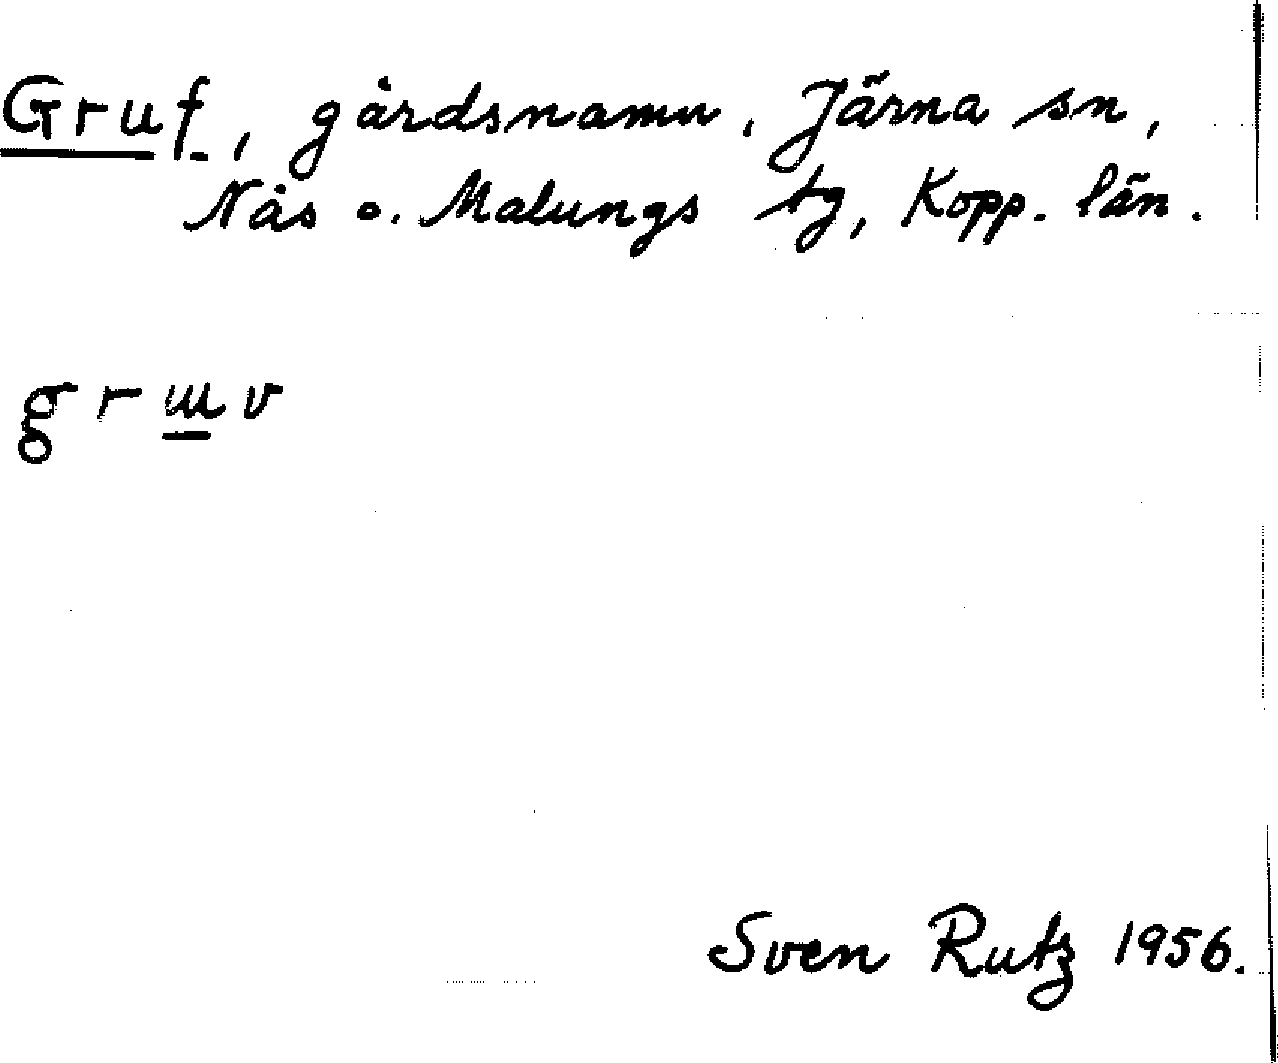 Gruf, gårdsnamn, Järna sn,
Nås o. Malungs tg, Kopp. län.
grɯv
Sven Rutz 1956.